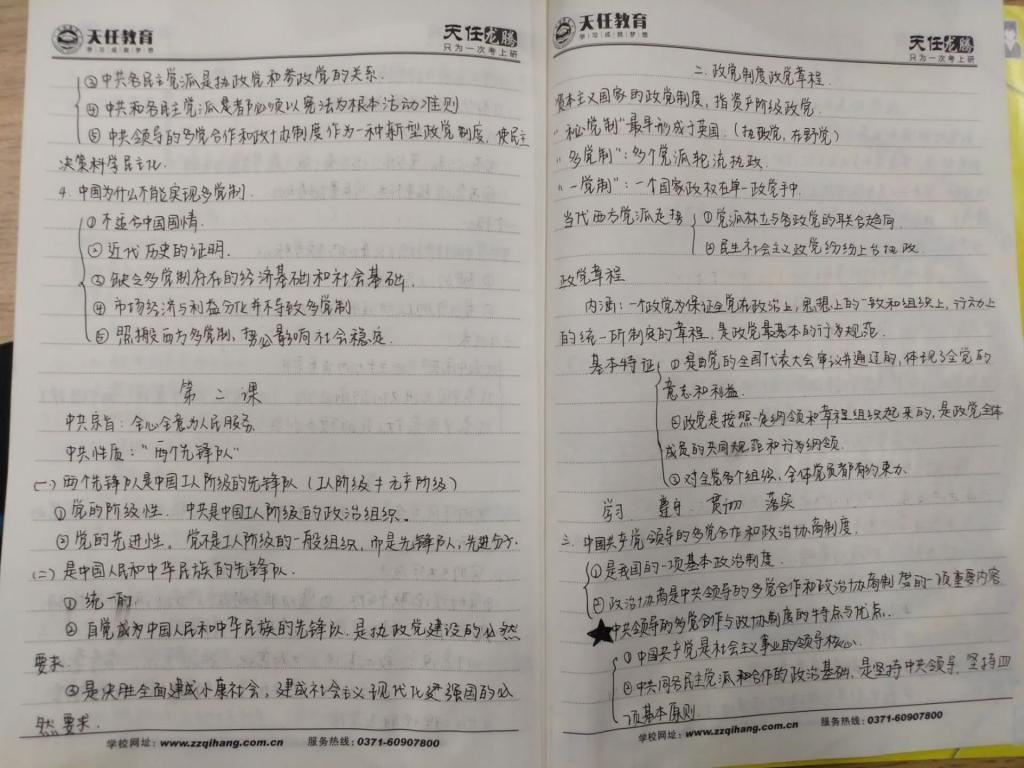 天任教育
学习成就梦想
天任龙腾
只为一次考上研
③中共各民主党派是执政党和参政党的关系.
④中共和各民主党派是都必须以宪法为根本活动准则
⑤中共领导的多党合作和政协制度作为一种新型政党制度,使民主
决策科学民主化.
4.中国为什么不能实现多党制.
①不适合中国国情.
②近代历史的证明.
③缺乏多党制存在的经济基础和社会基础.
④市场经济与利益分化并不导致多党制
⑤照搬西方多党制,势必影响社会稳定.
第二课
中共宗旨:全心全意为人民服务.
中共性质:“两个先锋队”
(一)两个先锋队是中国工人阶级的先锋队(工人阶级≠无产阶级)
①党的阶级性.中共是中国工人阶级的政治组织。
②党的先进性.党不是工人阶级的一般组织,而是先锋队,先进分子.
(二)是中国人民和中华民族的先锋队.
①统一的
②自觉成为中国人民和中华民族的先锋队.是执政党建设的必然
要求.
③是决胜全面建成小康社会,建成社会主义现代化强国的必
然要求.
学校网址:www.zzqihang.com.cn 服务热线:0371-60907800
天任教育
学习成就梦想
天任龙腾
只为一次考上研
二.政党制度政党章程.
资本主义国家的政党制度,指资产阶级政党.
党制”最早形成于英国.(执政党,在野党)
“多党制”:多个党派轮流执政.
“一党制”:一个国家政权在单一政党手中.
当代西方党派走
①党派林立与各政党的联合趋向.
②民主社会主义政党纷纷上台执政.
政党章程
内涵:一个政党为保证全党在政治上,思想上的一致和组织上,行动上
的统一所制定的章程,是政党最基本的行为规范.
基本特征
①是由党的全国代表大会审议并通过的,体现了全党的
意志和利益.
②政党是按照一定纲领和章程组织起来的,是政党全体
成员的共同规范和行为纲领.
③对全党各个组织,全体党员都有约束力.
学习 遵守 贯彻 落实
三.中国共产党领导的多党合作和政治协商制度.
①是我国的一项基本政治制度.
②政治协商是中共领导的多党合作和政治协商制度的一项重要内容
★中共领导的多党合作与政协制度的特点与优点.
①中国共产党是社会主义事业的领导核心.
②中共同各民主党派和合作的政治基础,是坚持中共领导,坚持四
项基本原则
学校网址:www.zzqihang.com.cn 服务热线:0371-60907800